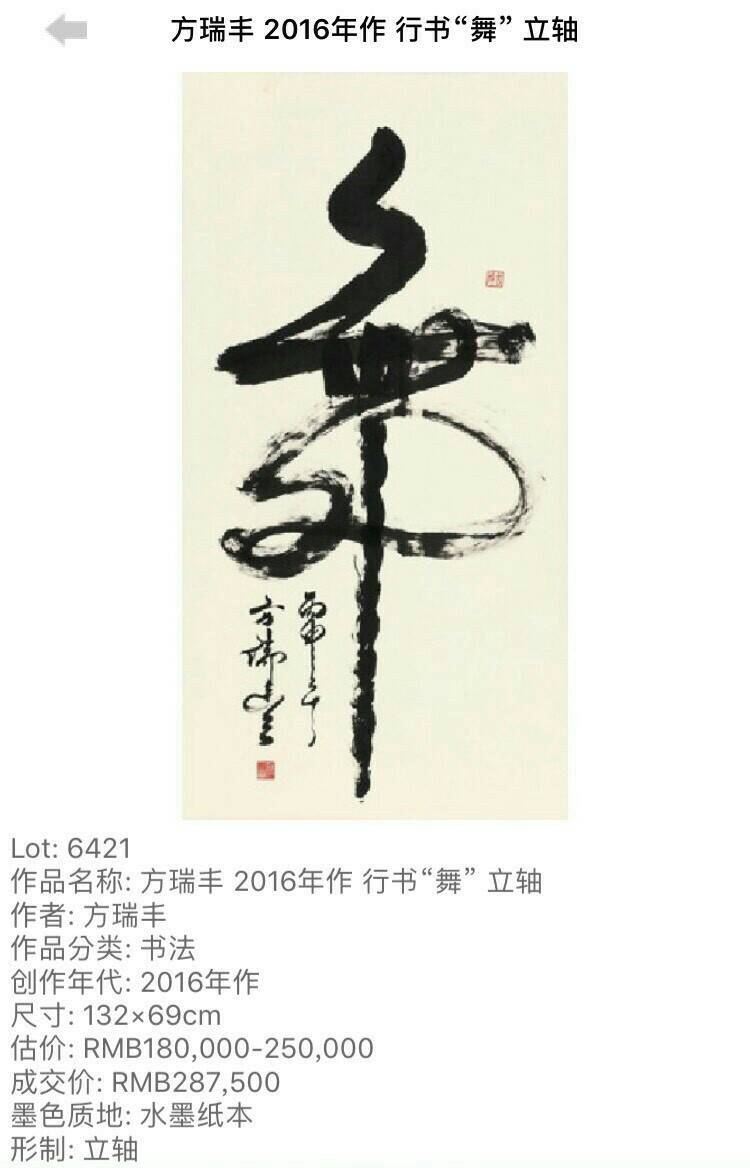 方瑞丰 2016年作 行书“舞” 立轴
舞
丙申之年
方瑞丰
Lot: 6421
作品名称: 方瑞丰 2016年作 行书“舞” 立轴
作者: 方瑞丰
作品分类: 书法
创作年代: 2016年作
尺寸: 132×69cm
估价: RMB180,000-250,000
成交价: RMB287,500
墨色质地: 水墨纸本
形制: 立轴